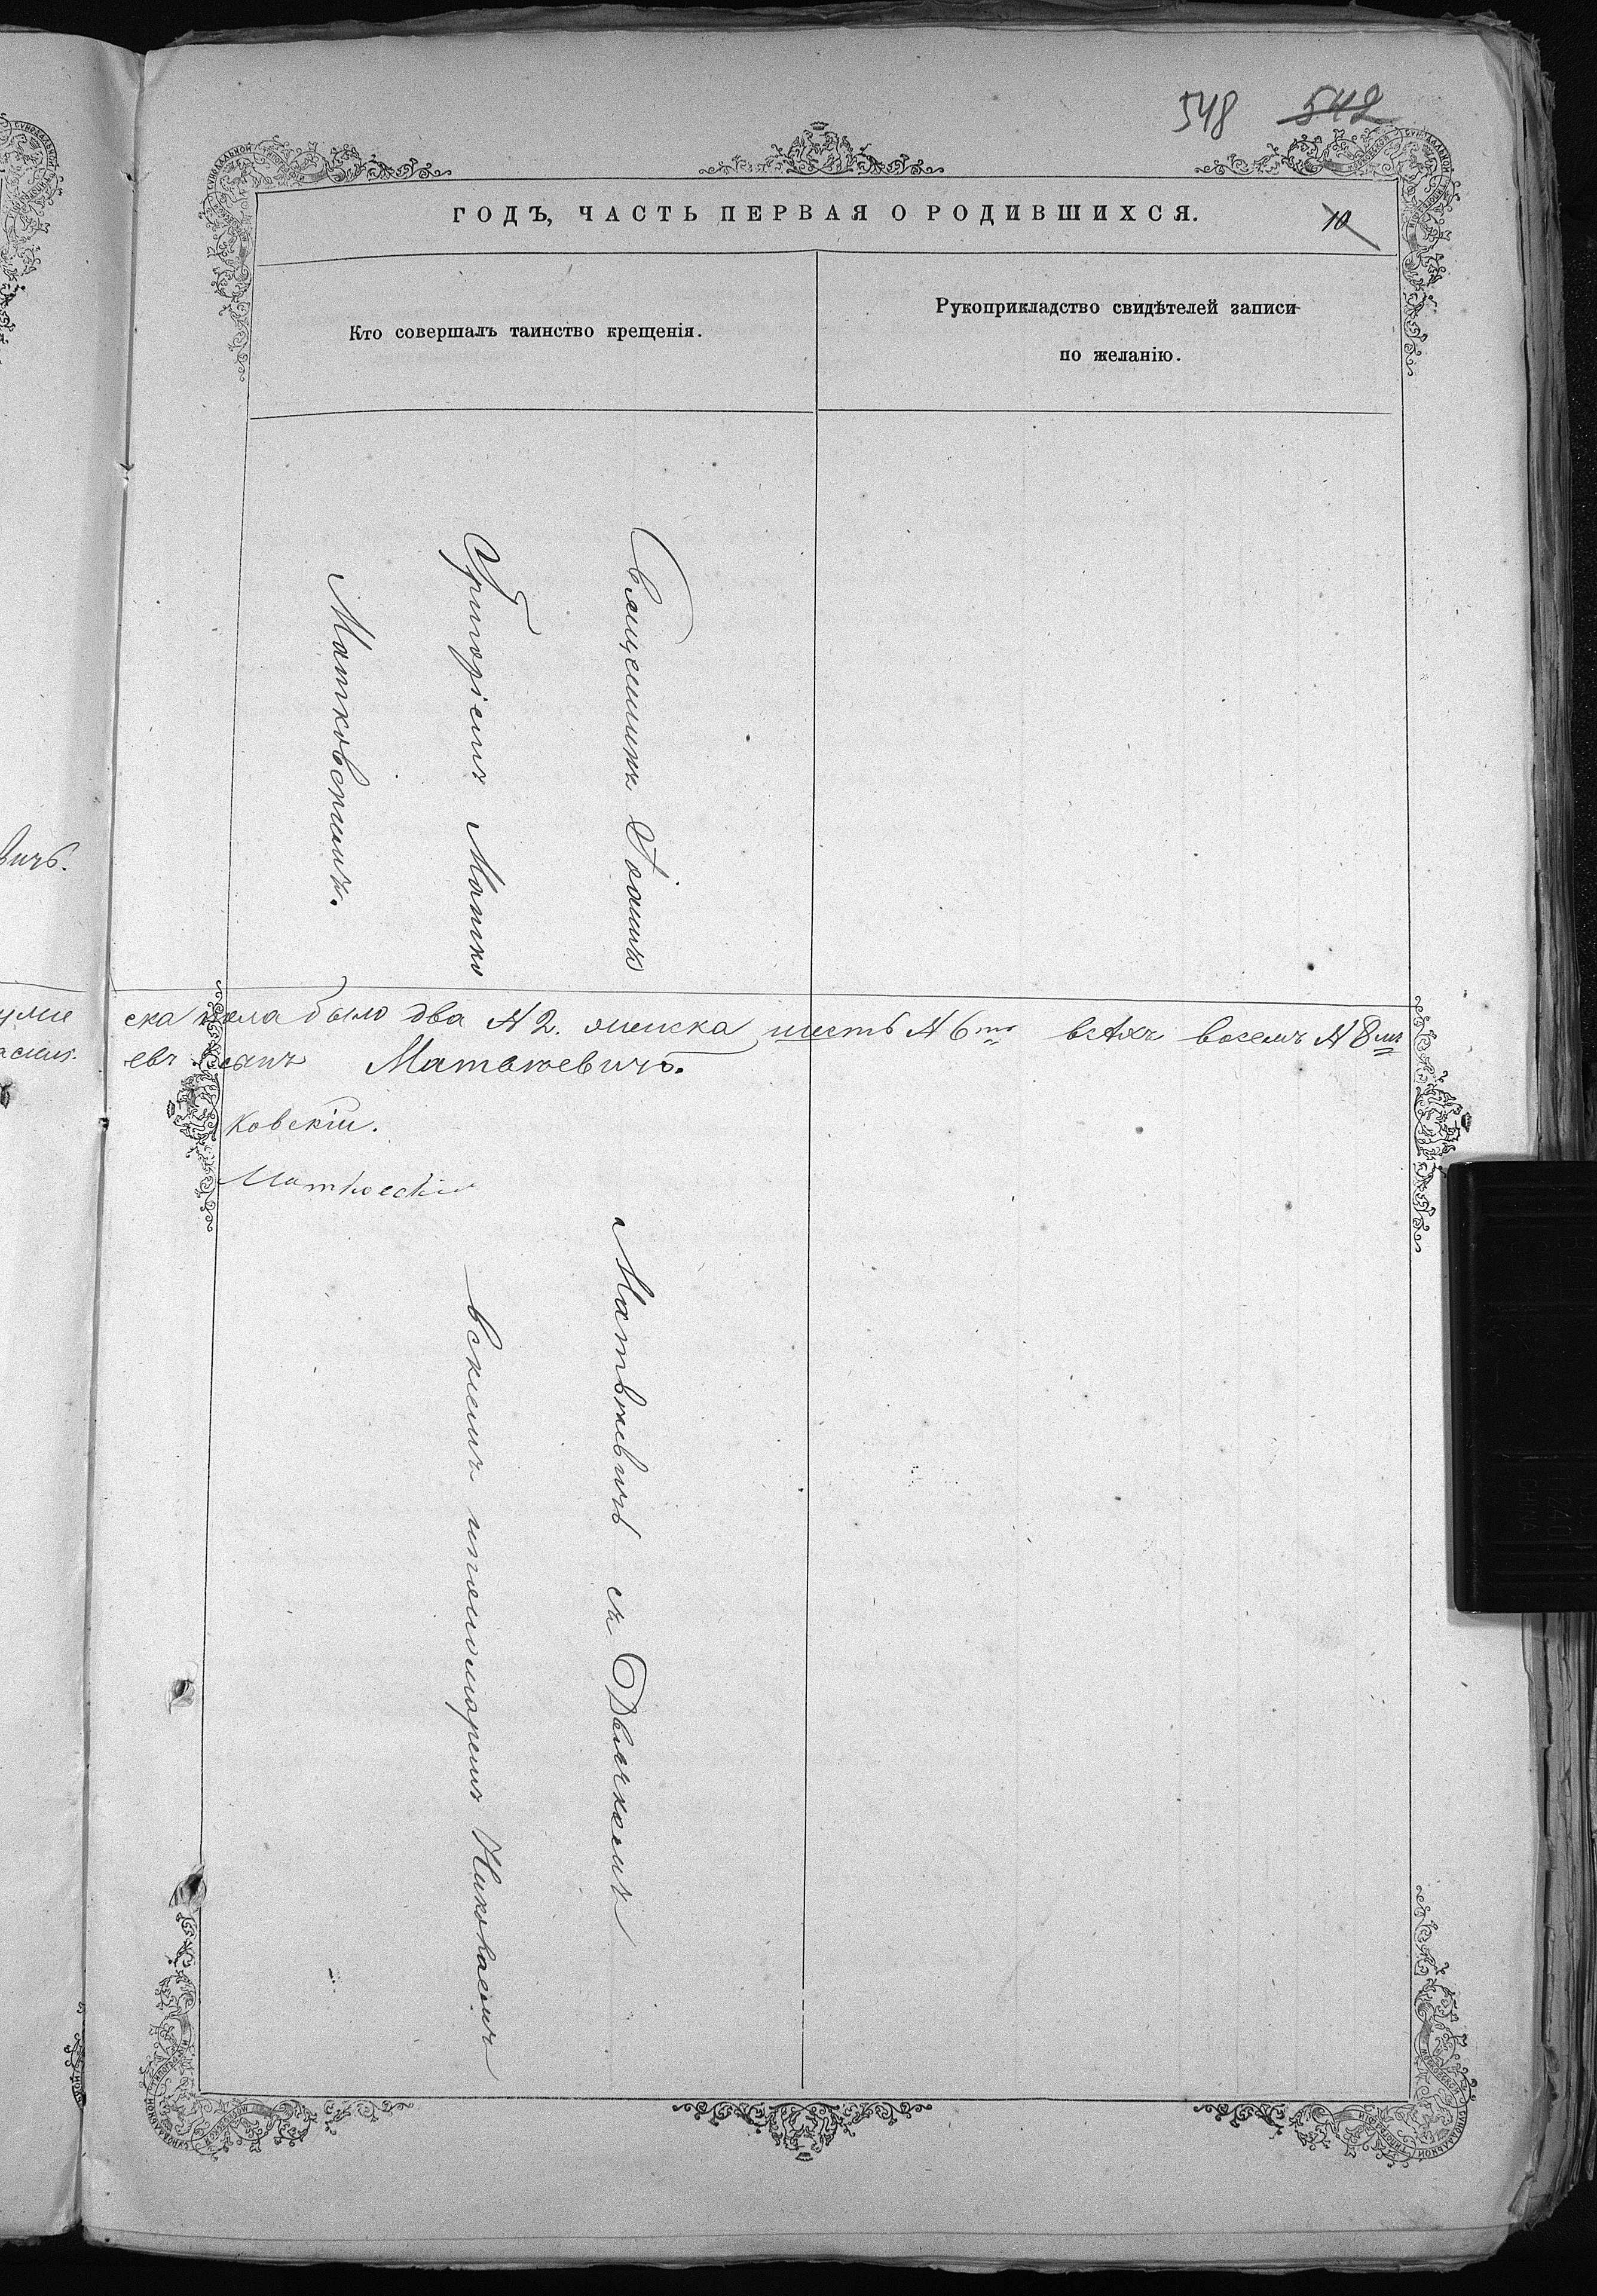 548 542
ГОДЪ, ЧАСТЬ ПЕРВАЯ О РОДИВШИХСЯ.
10
Кто совершалъ таинство крещенія.
Рукоприкладство свидѣтелей записи
по желанію.
Священникъ Іоаннъ
Григоріемъ Матко
Матковскимъ.
вичъ.
ска пола было два № 2. женска шесть № 6ть всѣхъ восемь № 8мь
евъ Іоаннъ Матвіевичъ.
ковскій.
Матковскій
Матвіевичъ съ Дьячкомъ
вскимъ и пономаремъ Николаемъ